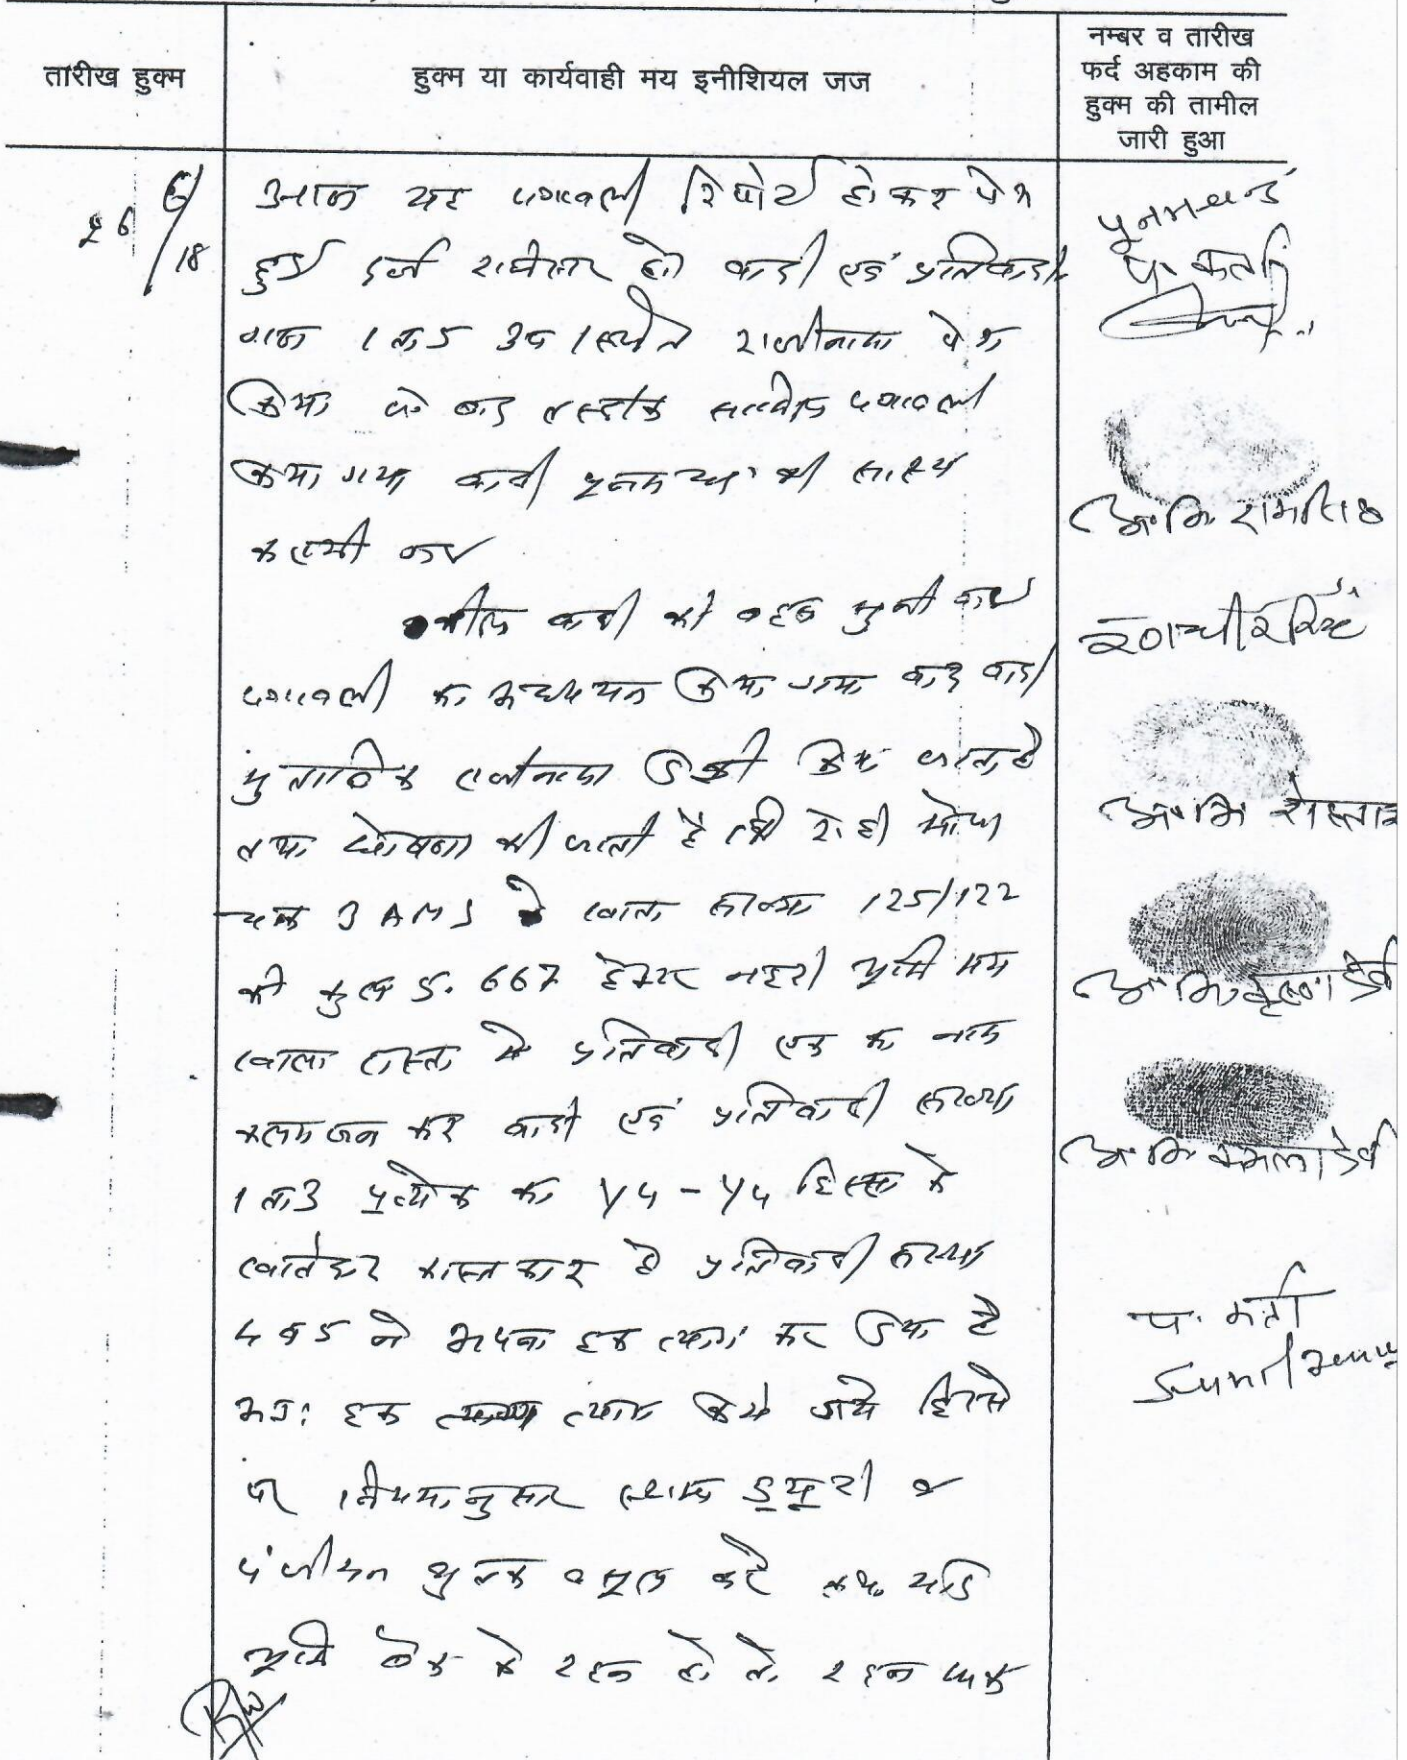 तारीख हुक्म
हुक्म या कार्यवाही मय इनीशियल जज
नम्बर व तारीख
फर्द अहकाम की
हुक्म की तामील
जारी हुआ
26/6/18
आज यह पत्रावली रिपोर्ट होकर पेश
हुई दर्ज रजिस्टर हो वादी एवं प्रतिवादी
गण 1 ता 5 उपस्थित राजीनामा पेश
किया जो बाद तस्दीक शामिल पत्रावली
किया गया वादी पूनमचन्द की साक्ष्य
कलमबद्ध की गई
वकील वादी की बहस सुनी गई
पत्रावली का अध्ययन किया गया वाद वादी
मुताबिक राजीनामा डिक्री किया जाता है
तथा घोषणा की जाती है की रोही मौजा
चक 3 AMS के खाता संख्या 125/122
की कुल 5.667 हैक्टर नहरी भूमि मय
खाला रास्ता में प्रतिवादी एक का नाम
कलमजन कर वादी एवं प्रतिवादी संख्या
1 ता 3 प्रत्येक का 1/4 - 1/4 हिस्सा के
खातेदार काश्तकार है प्रतिवादी संख्या
4 व 5 ने अपना हक त्याग कर दिया है
अतः हक त्याग किये गये हिस्से
पर नियमानुसार स्टाम्प ड्यूटी व
पंजीयन शुल्क वसूल करें तथा यदि
भूमि बैंक के रहन हो तो रहन
पूनमचन्द
प. कर्ता
अ. नि. रामसिंह
रणधीरसिंह
अ. नि.
अ. नि. कृष्णा देवी
अ. नि. कमला देवी
प. कर्ता